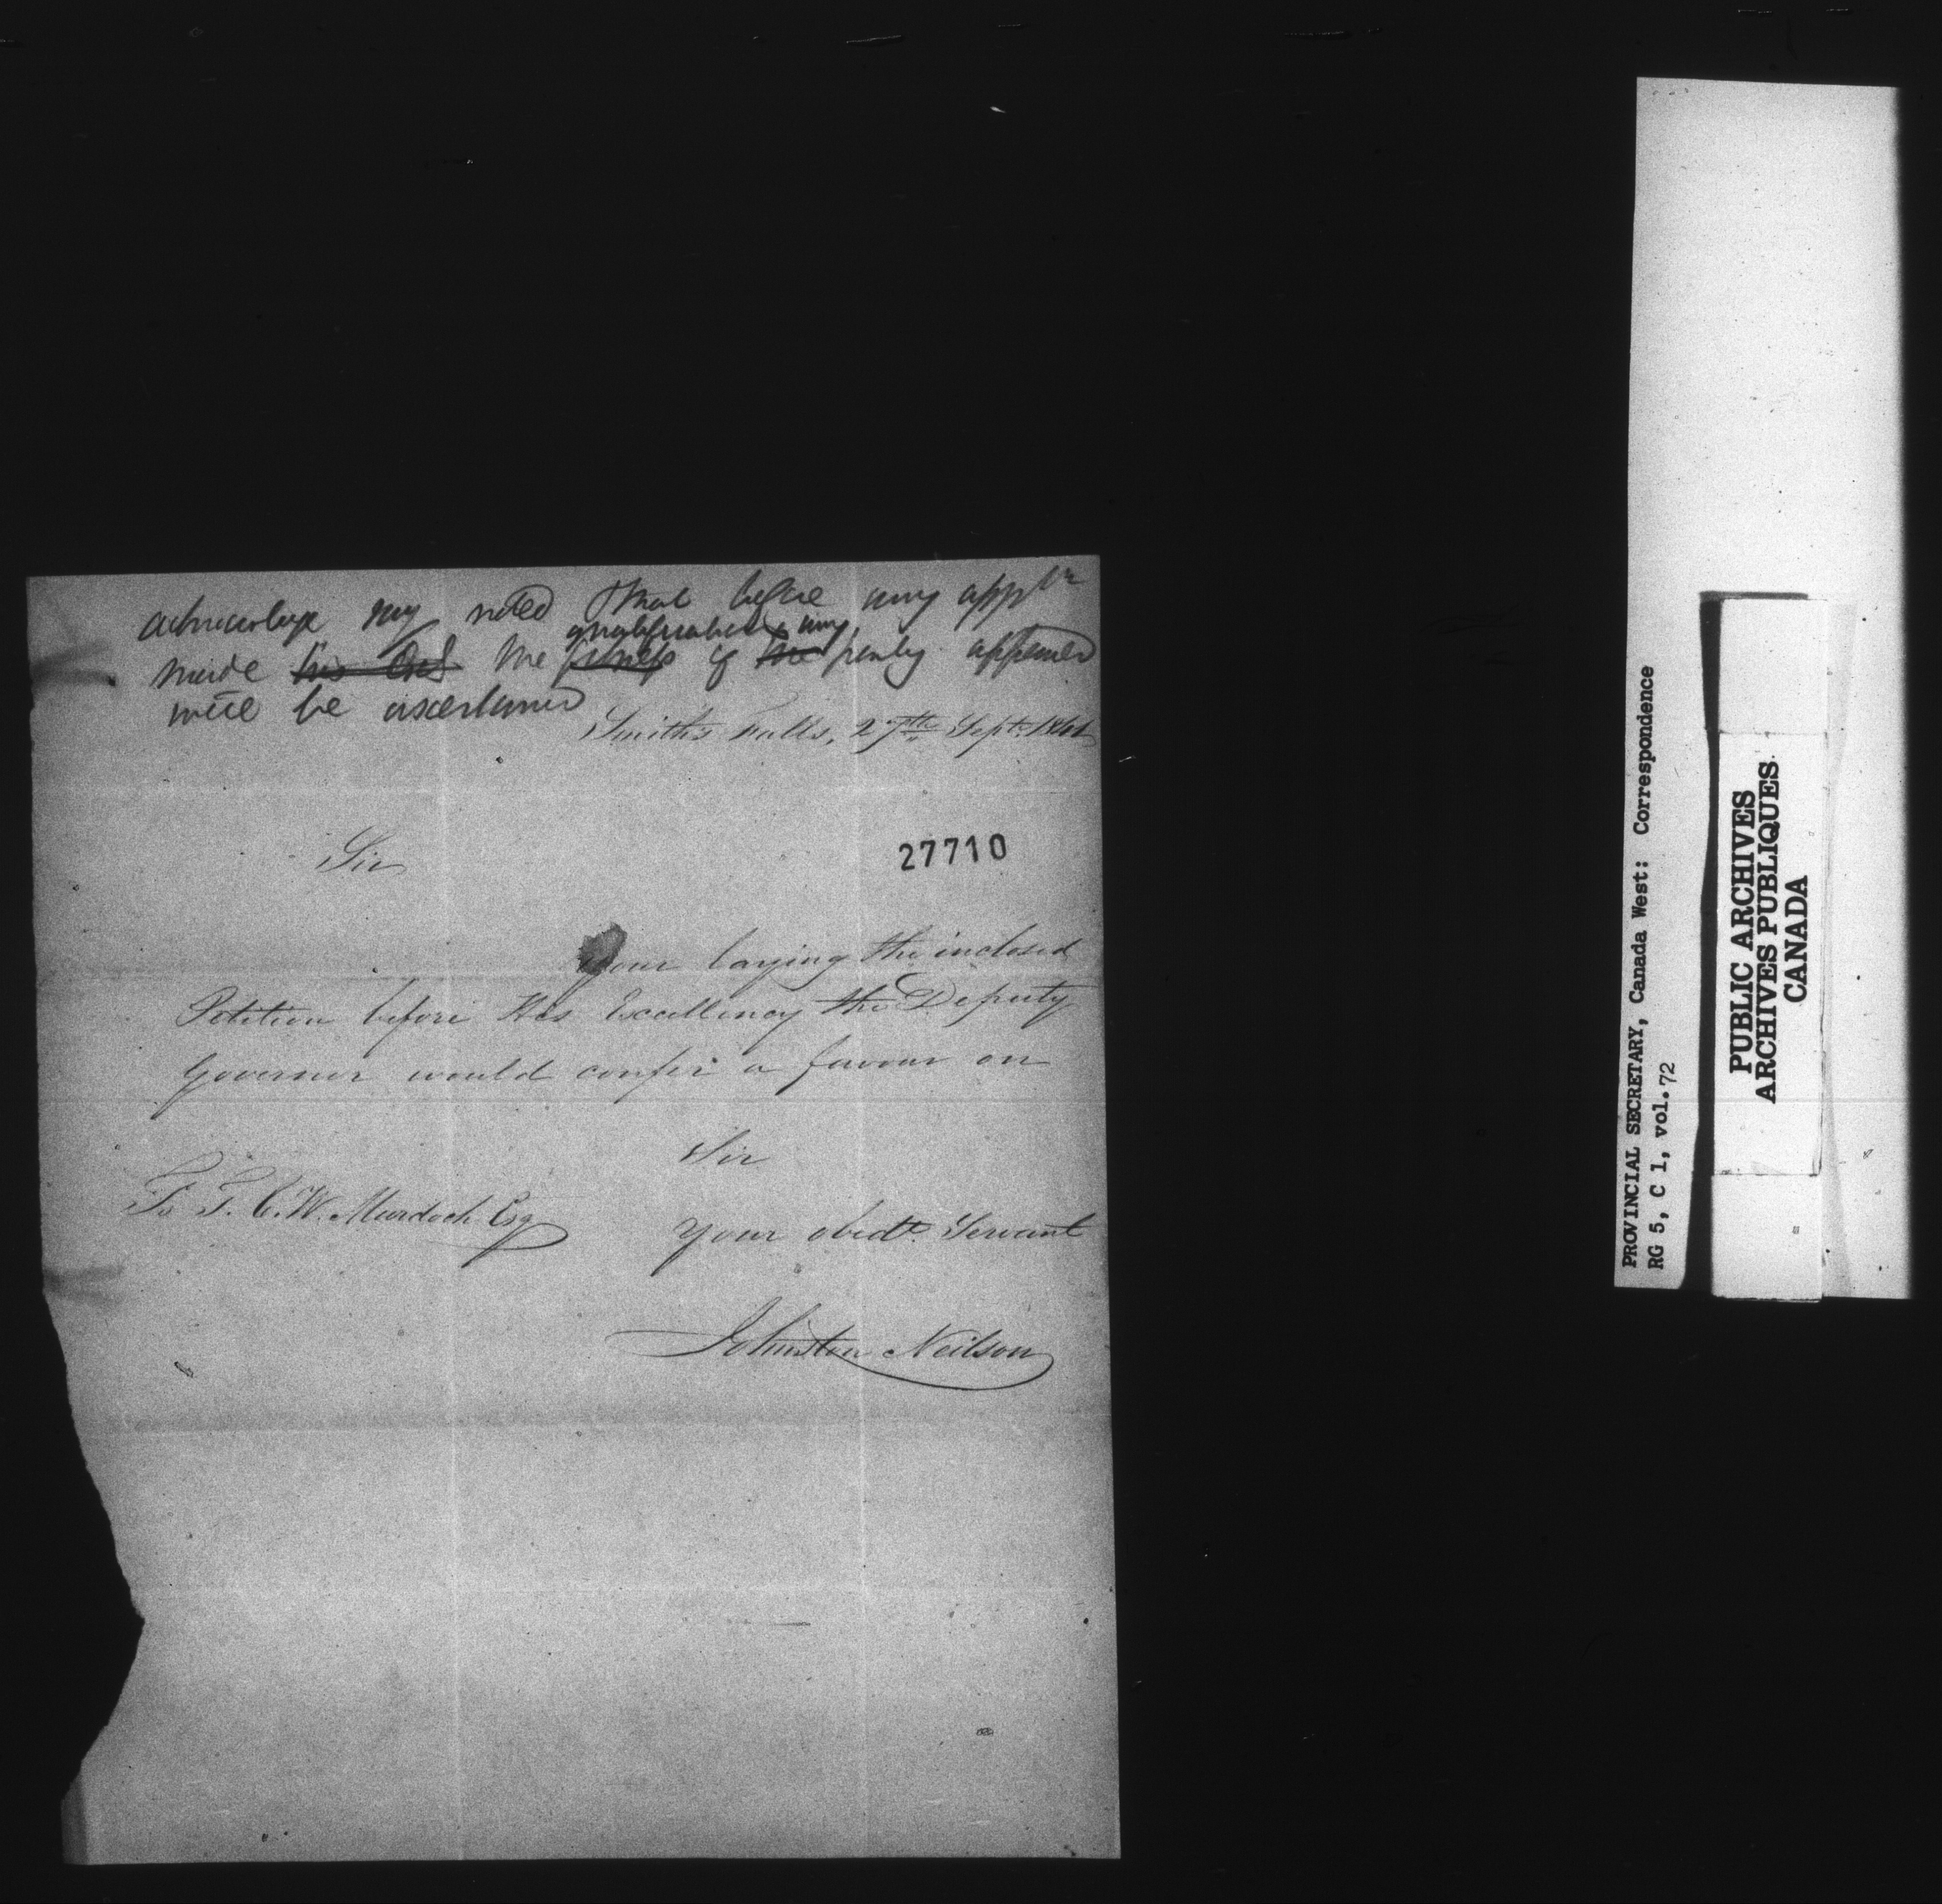 acknowledge say noted that before any app<sup>tn</sup>
qualifications any
made his Exl the fitness of the party appointed
will be ascertained
Smith's Falls, 27th Sept. 1841
Sir
27710
Your laying the inclosed
Petition before His Excellency the Deputy
Governor would confer a favour on
Sir
To T. C. W. Murdoch Esq
Your obedt. Servant
Johnston Neilson
PROVINCIAL SECRETARY, Canada West: Correspondence
RG 5, C 1, vol.72
PUBLIC ARCHIVES
ARCHIVES PUBLIQUES
CANADA